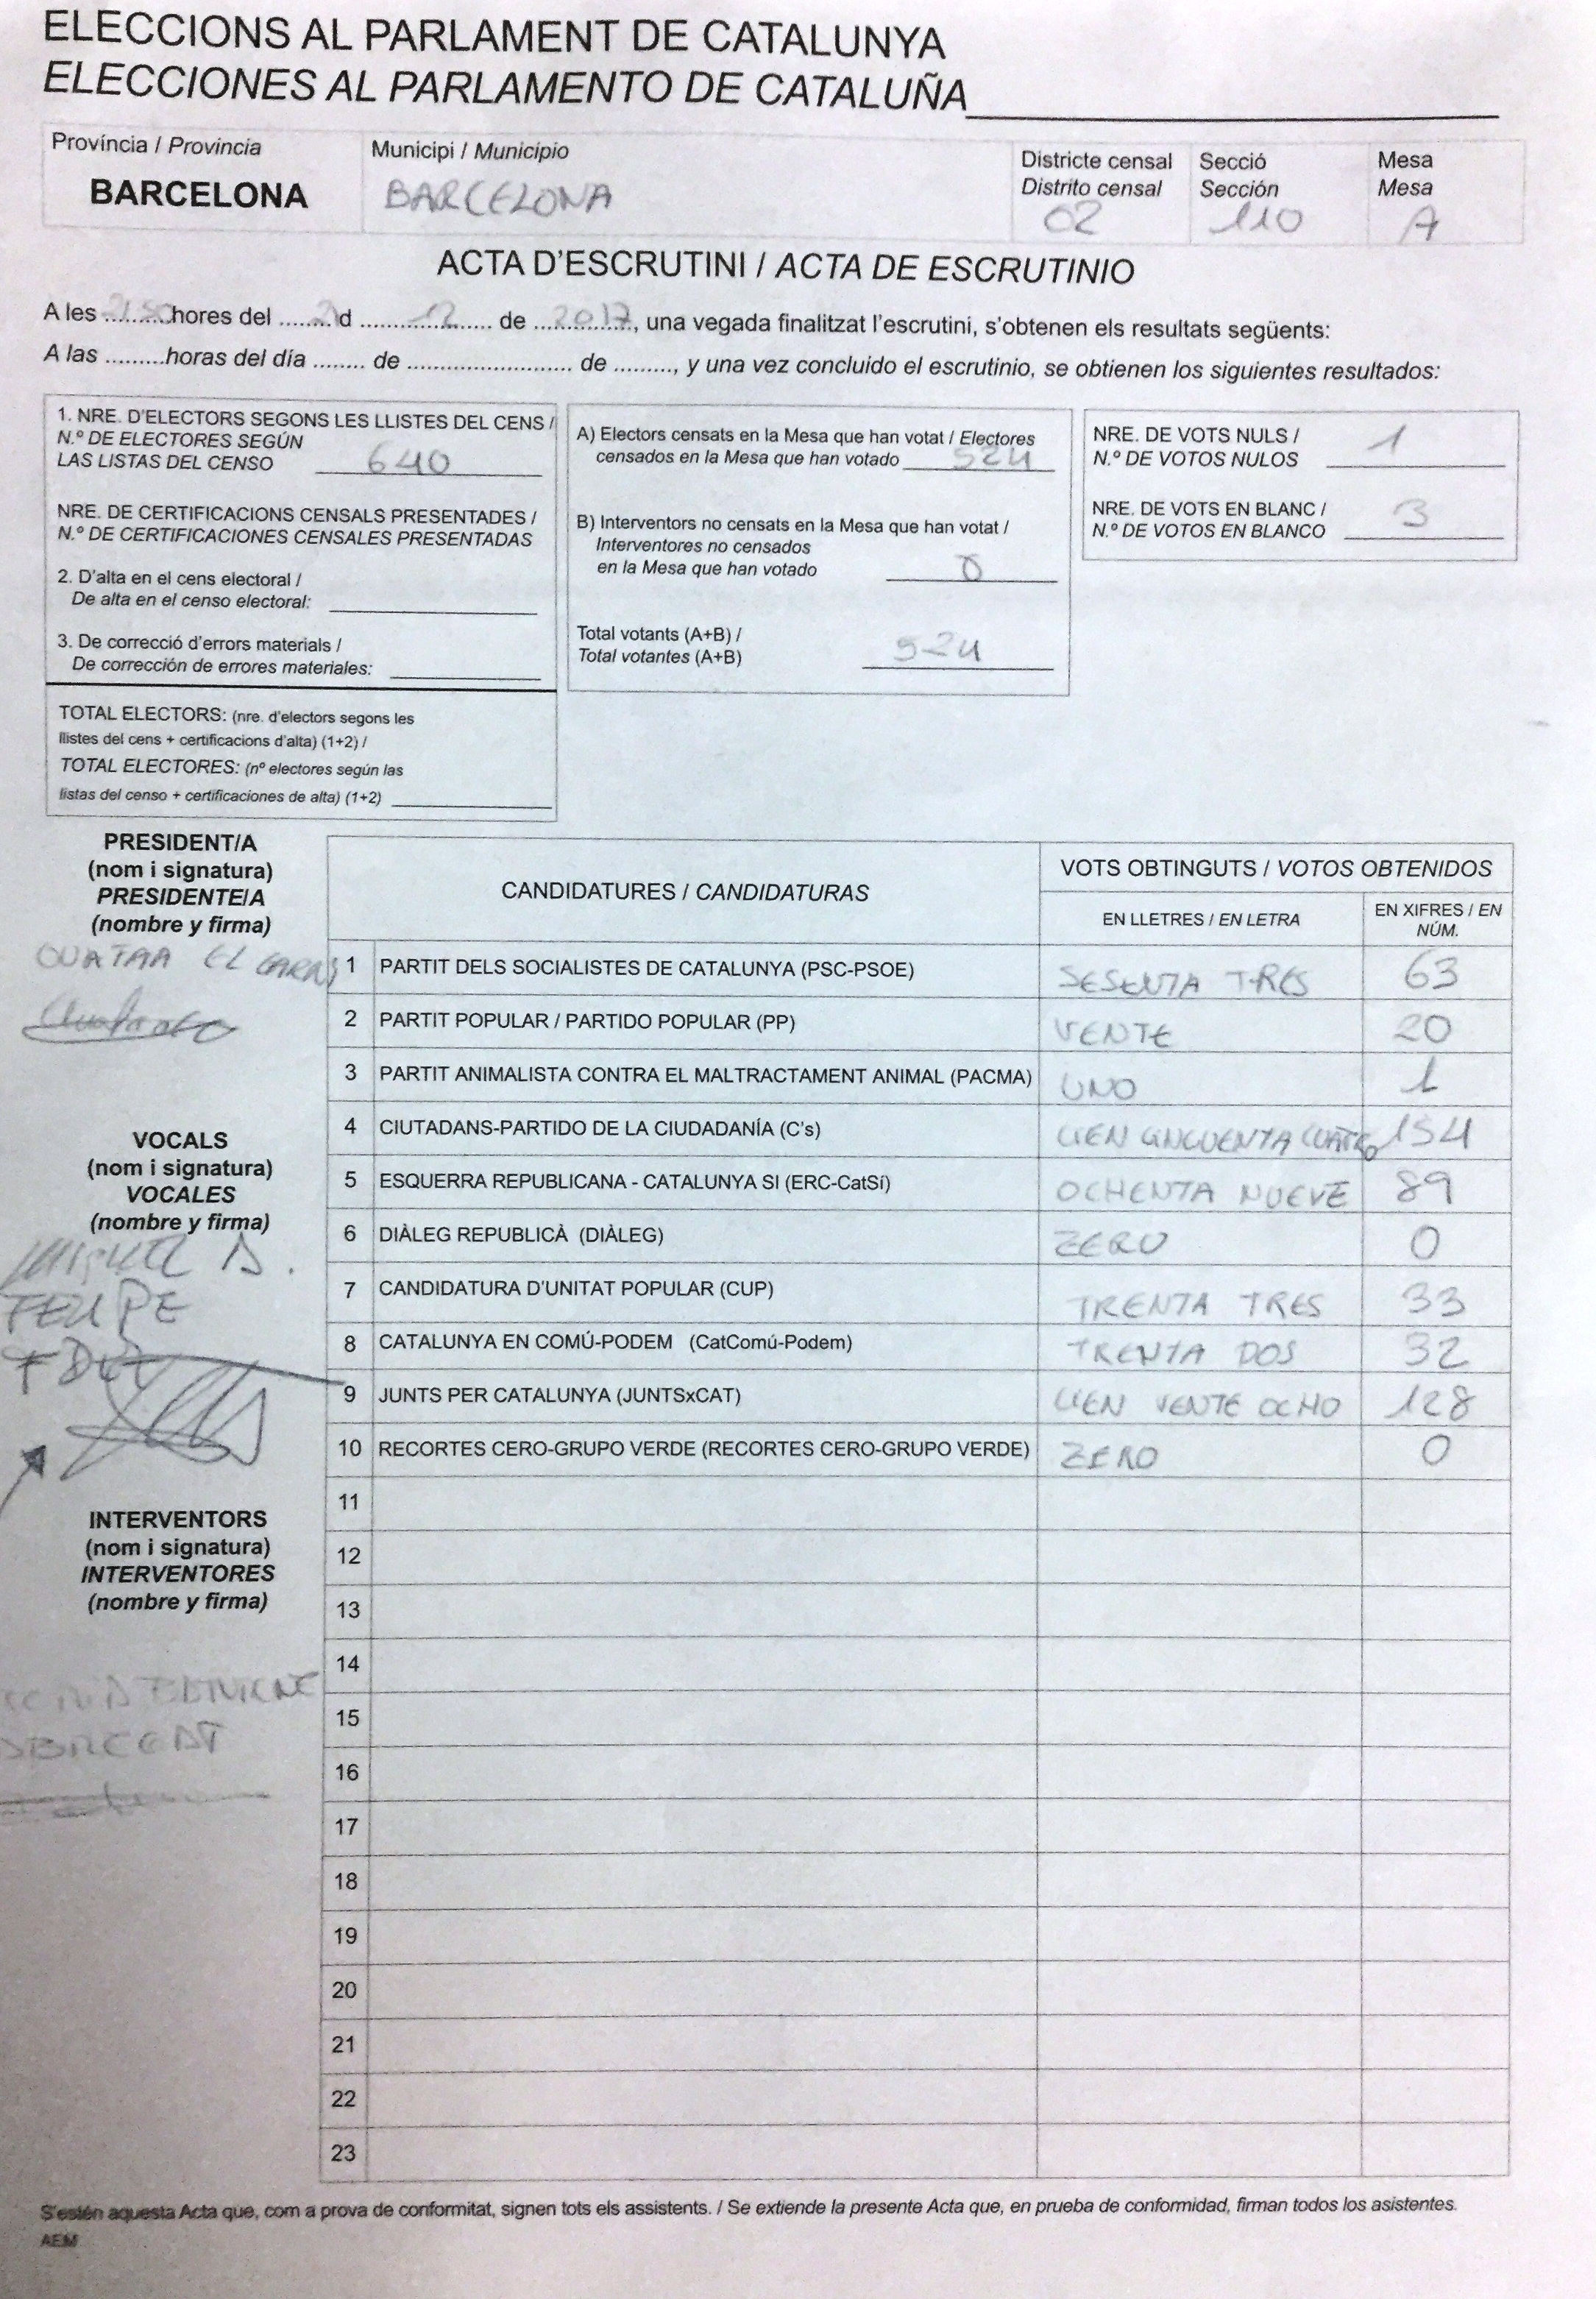 ELECCIONS AL PARLAMENT DE CATALUNYA
ELECCIONES AL PARLAMENTO DE CATALUÑA
Província / Provincia
BARCELONA
Municipi / Municipio
BARCELONA
Districte censal
Distrito censal
02
Secció
Sección
110
Mesa
Mesa
A
ACTA D'ESCRUTINI / ACTA DE ESCRUTINIO
A les ......... hores del ......... d ......... 12 ......... de ... 2017 ..., una vegada finalitzat l'escrutini, s'obtenen els resultats següents:
A las ..........horas del día ........ de ................................ de .........., y una vez concluido el escrutinio, se obtienen los siguientes resultados:
1. NRE. D'ELECTORS SEGONS LES LLISTES DEL CENS /
N.º DE ELECTORES SEGÚN
LAS LISTAS DEL CENSO 640
NRE. DE CERTIFICACIONS CENSALS PRESENTADES /
N.º DE CERTIFICACIONES CENSALES PRESENTADAS
2. D'alta en el cens electoral /
De alta en el censo electoral:
3. De correcció d'errors materials /
De corrección de errores materiales:
TOTAL ELECTORS: (nre. d'electors segons les
llistes del cens + certificacions d'alta) (1+2) /
TOTAL ELECTORES: (nº electores según las
listas del censo + certificaciones de alta) (1+2)
A) Electors censats en la Mesa que han votat / Electores
censados en la Mesa que han votado 524
B) Interventors no censats en la Mesa que han votat /
Interventores no censados
en la Mesa que han votado 0
Total votants (A+B) /
Total votantes (A+B) 524
NRE. DE VOTS NULS /
N.º DE VOTOS NULOS 1
NRE. DE VOTS EN BLANC /
N.º DE VOTOS EN BLANCO 3
PRESIDENT/A
(nom i signatura)
PRESIDENTE/A
(nombre y firma)
VOCALS
(nom i signatura)
VOCALES
(nombre y firma)
FELIPE
INTERVENTORS
(nom i signatura)
INTERVENTORES
(nombre y firma)
CANDIDATURES / CANDIDATURAS
VOTS OBTINGUTS / VOTOS OBTENIDOS
EN LLETRES / EN LETRA
EN XIFRES / EN NÚM.
1 PARTIT DELS SOCIALISTES DE CATALUNYA (PSC-PSOE) SESENTA TRES 63
2 PARTIT POPULAR / PARTIDO POPULAR (PP) VENTE 20
3 PARTIT ANIMALISTA CONTRA EL MALTRACTAMENT ANIMAL (PACMA) UNO 1
4 CIUTADANS-PARTIDO DE LA CIUDADANÍA (C's) CIEN CINCUENTA CUATRO 154
5 ESQUERRA REPUBLICANA - CATALUNYA SI (ERC-CatSí) OCHENTA NUEVE 89
6 DIÀLEG REPUBLICÀ (DIÀLEG) ZERO 0
7 CANDIDATURA D'UNITAT POPULAR (CUP) TRENTA TRES 33
8 CATALUNYA EN COMÚ-PODEM (CatComú-Podem) TRENTA DOS 32
9 JUNTS PER CATALUNYA (JUNTSxCAT) CIEN VENTE OCHO 128
10 RECORTES CERO-GRUPO VERDE (RECORTES CERO-GRUPO VERDE) ZERO 0
11
12
13
14
15
16
17
18
19
20
21
22
23
S'estén aquesta Acta que, com a prova de conformitat, signen tots els assistents. / Se extiende la presente Acta que, en prueba de conformidad, firman todos los asistentes.
AEM